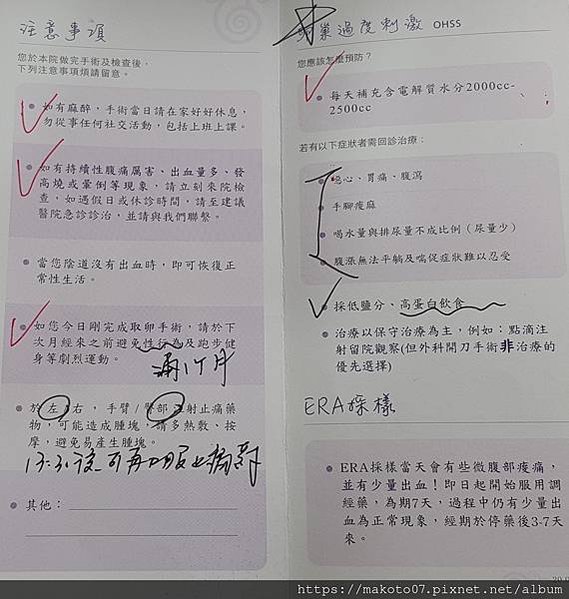 注意事項
您於本院做完手術及檢查後，
下列注意事項煩請留意。
如有麻醉，手術當日請在家好好休息，
勿從事任何社交活動，包括上班上課。
如有持續性腹痛厲害、出血量多、發
高燒或暈倒等現象，請立刻來院檢
查，如遇假日或休診時間，請至建議
醫院急診診治，並請與我們聯繫。
當您陰道沒有出血時，即可恢復正
常性生活。
如您今日剛完成取卵手術，請於下
次月經來之前避免性行為及跑步健
身等劇烈運動。
滿1個月
於 左/右 ，手臂/臀部 注射止痛藥
物，可能造成腫塊，請多熱敷、按
摩，避免易產生腫塊。
13:30後 可再 止痛
其他：
卵巢過度刺激 OHSS
您應該怎麼預防？
每天補充含電解質水分2000cc-
2500cc
若有以下症狀者需回診治療：
噁心、胃痛、腹瀉
手腳痠麻
喝水量與排尿量不成比例（尿量少）
腹漲無法平躺及喘促症狀難以忍受
採低鹽分、高蛋白飲食
治療以保守治療為主，例如：點滴注
射留院觀察(但外科開刀手術非治療的
優先選擇)
ERA採樣
ERA採樣當天會有些微腹部痠痛，
並有少量出血！即日起開始服用調
經藥，為期7天，過程中仍有少量出
血為正常現象，經期於停藥後3-7天
來。
https://makoto07.pixnet.net/album